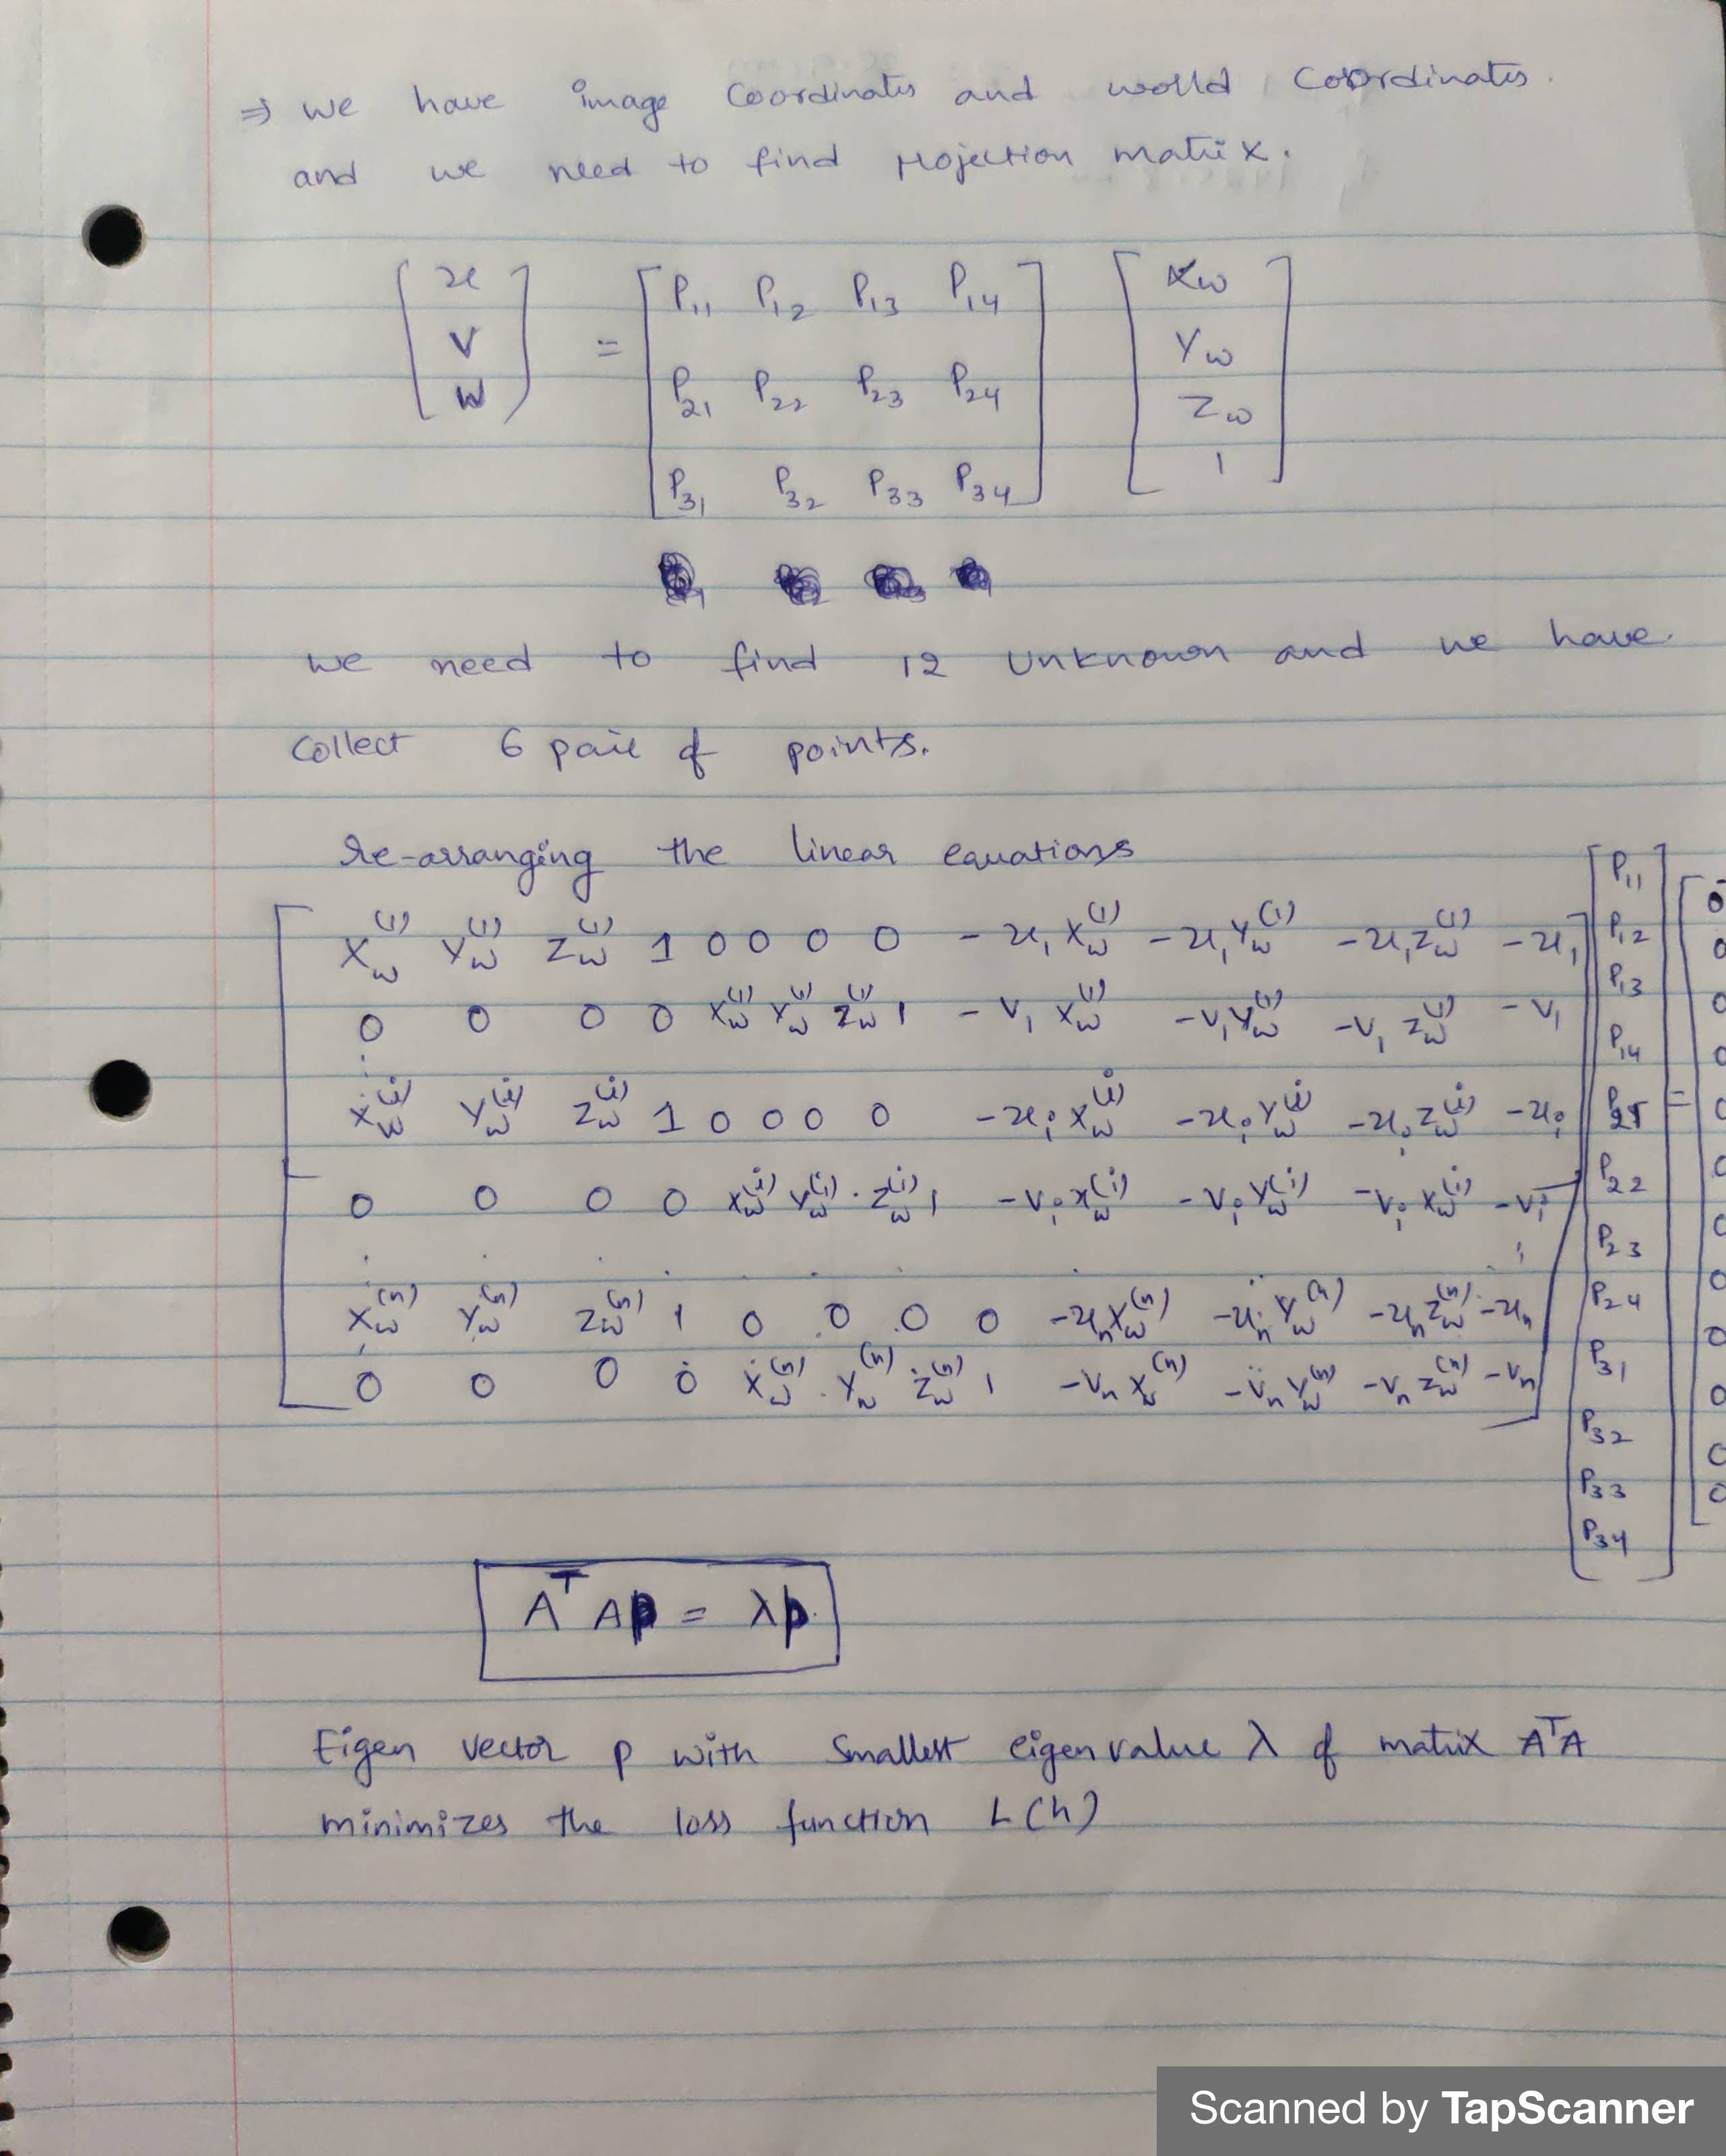 ⇒ we have image coordinates and world coordinates.
and we need to find projection matrix.
[u v w] = [P11 P12 P13 P14 [Xw
P21 P22 P23 P24 Yw
P31 P32 P33 P34] Zw
1]
we need to find 12 unknown and we have
collect 6 pair of points.
Re-arranging the linear equations
[Xw(1) Yw(1) Zw(1) 1 0 0 0 0 -u1Xw(1) -u1Yw(1) -u1Zw(1) -u1
0 0 0 0 Xw(1) Yw(1) Zw(1) 1 -v1Xw(1) -v1Yw(1) -v1Zw(1) -v1
Xw(i) Yw(i) Zw(i) 1 0 0 0 0 -uiXw(i) -uiYw(i) -uiZw(i) -ui
0 0 0 0 Xw(i) Yw(i) Zw(i) 1 -viXw(i) -viYw(i) -viXw(i) -vi
Xw(n) Yw(n) Zw(n) 1 0 0 0 0 -unXw(n) -unYw(n) -unZw(n) -un
0 0 0 0 Xw(n) Yw(n) Zw(n) 1 -vnXw(n) -vnYw(n) -vnZw(n) -vn]
[P11
P12
P13
P14
P21
P22
P23
P24
P31
P32
P33
P34]
=
[0
0
0
0
0
0
0
0
0
0
0
0
AᵀAp = λp
Eigen vector p with smallest eigenvalue λ of matrix AᵀA
minimizes the loss function L(h)
Scanned by TapScanner